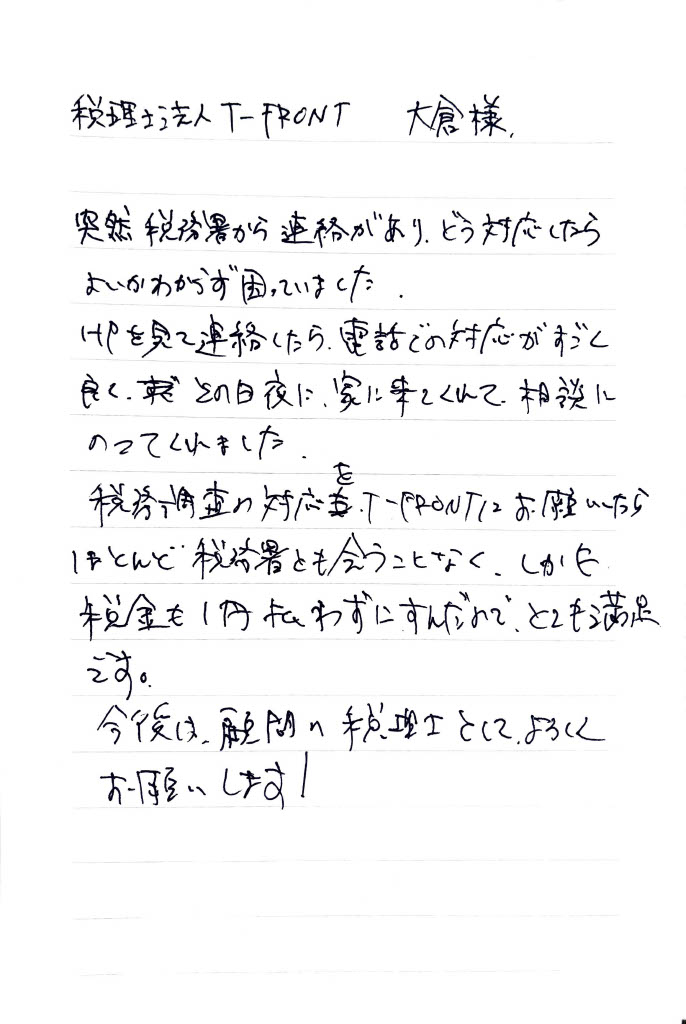 税理士法人T-FRONT 大倉様,
突然税務署から連絡があり、どう対応したら
よいかわからず困っていました.
HPを見て連絡したら、電話での対応がすごく
良く、その日夜に、家に来てくれて、相談に
のってくれました.
税務調査の対応を、T-FRONTにお願いしたら
ほとんど税務署とも会うことなく、しかも
税金も1円も払わずにすんだので、とても満足
です。
今後は、顧問の税理士として、よろしく
お願いします!